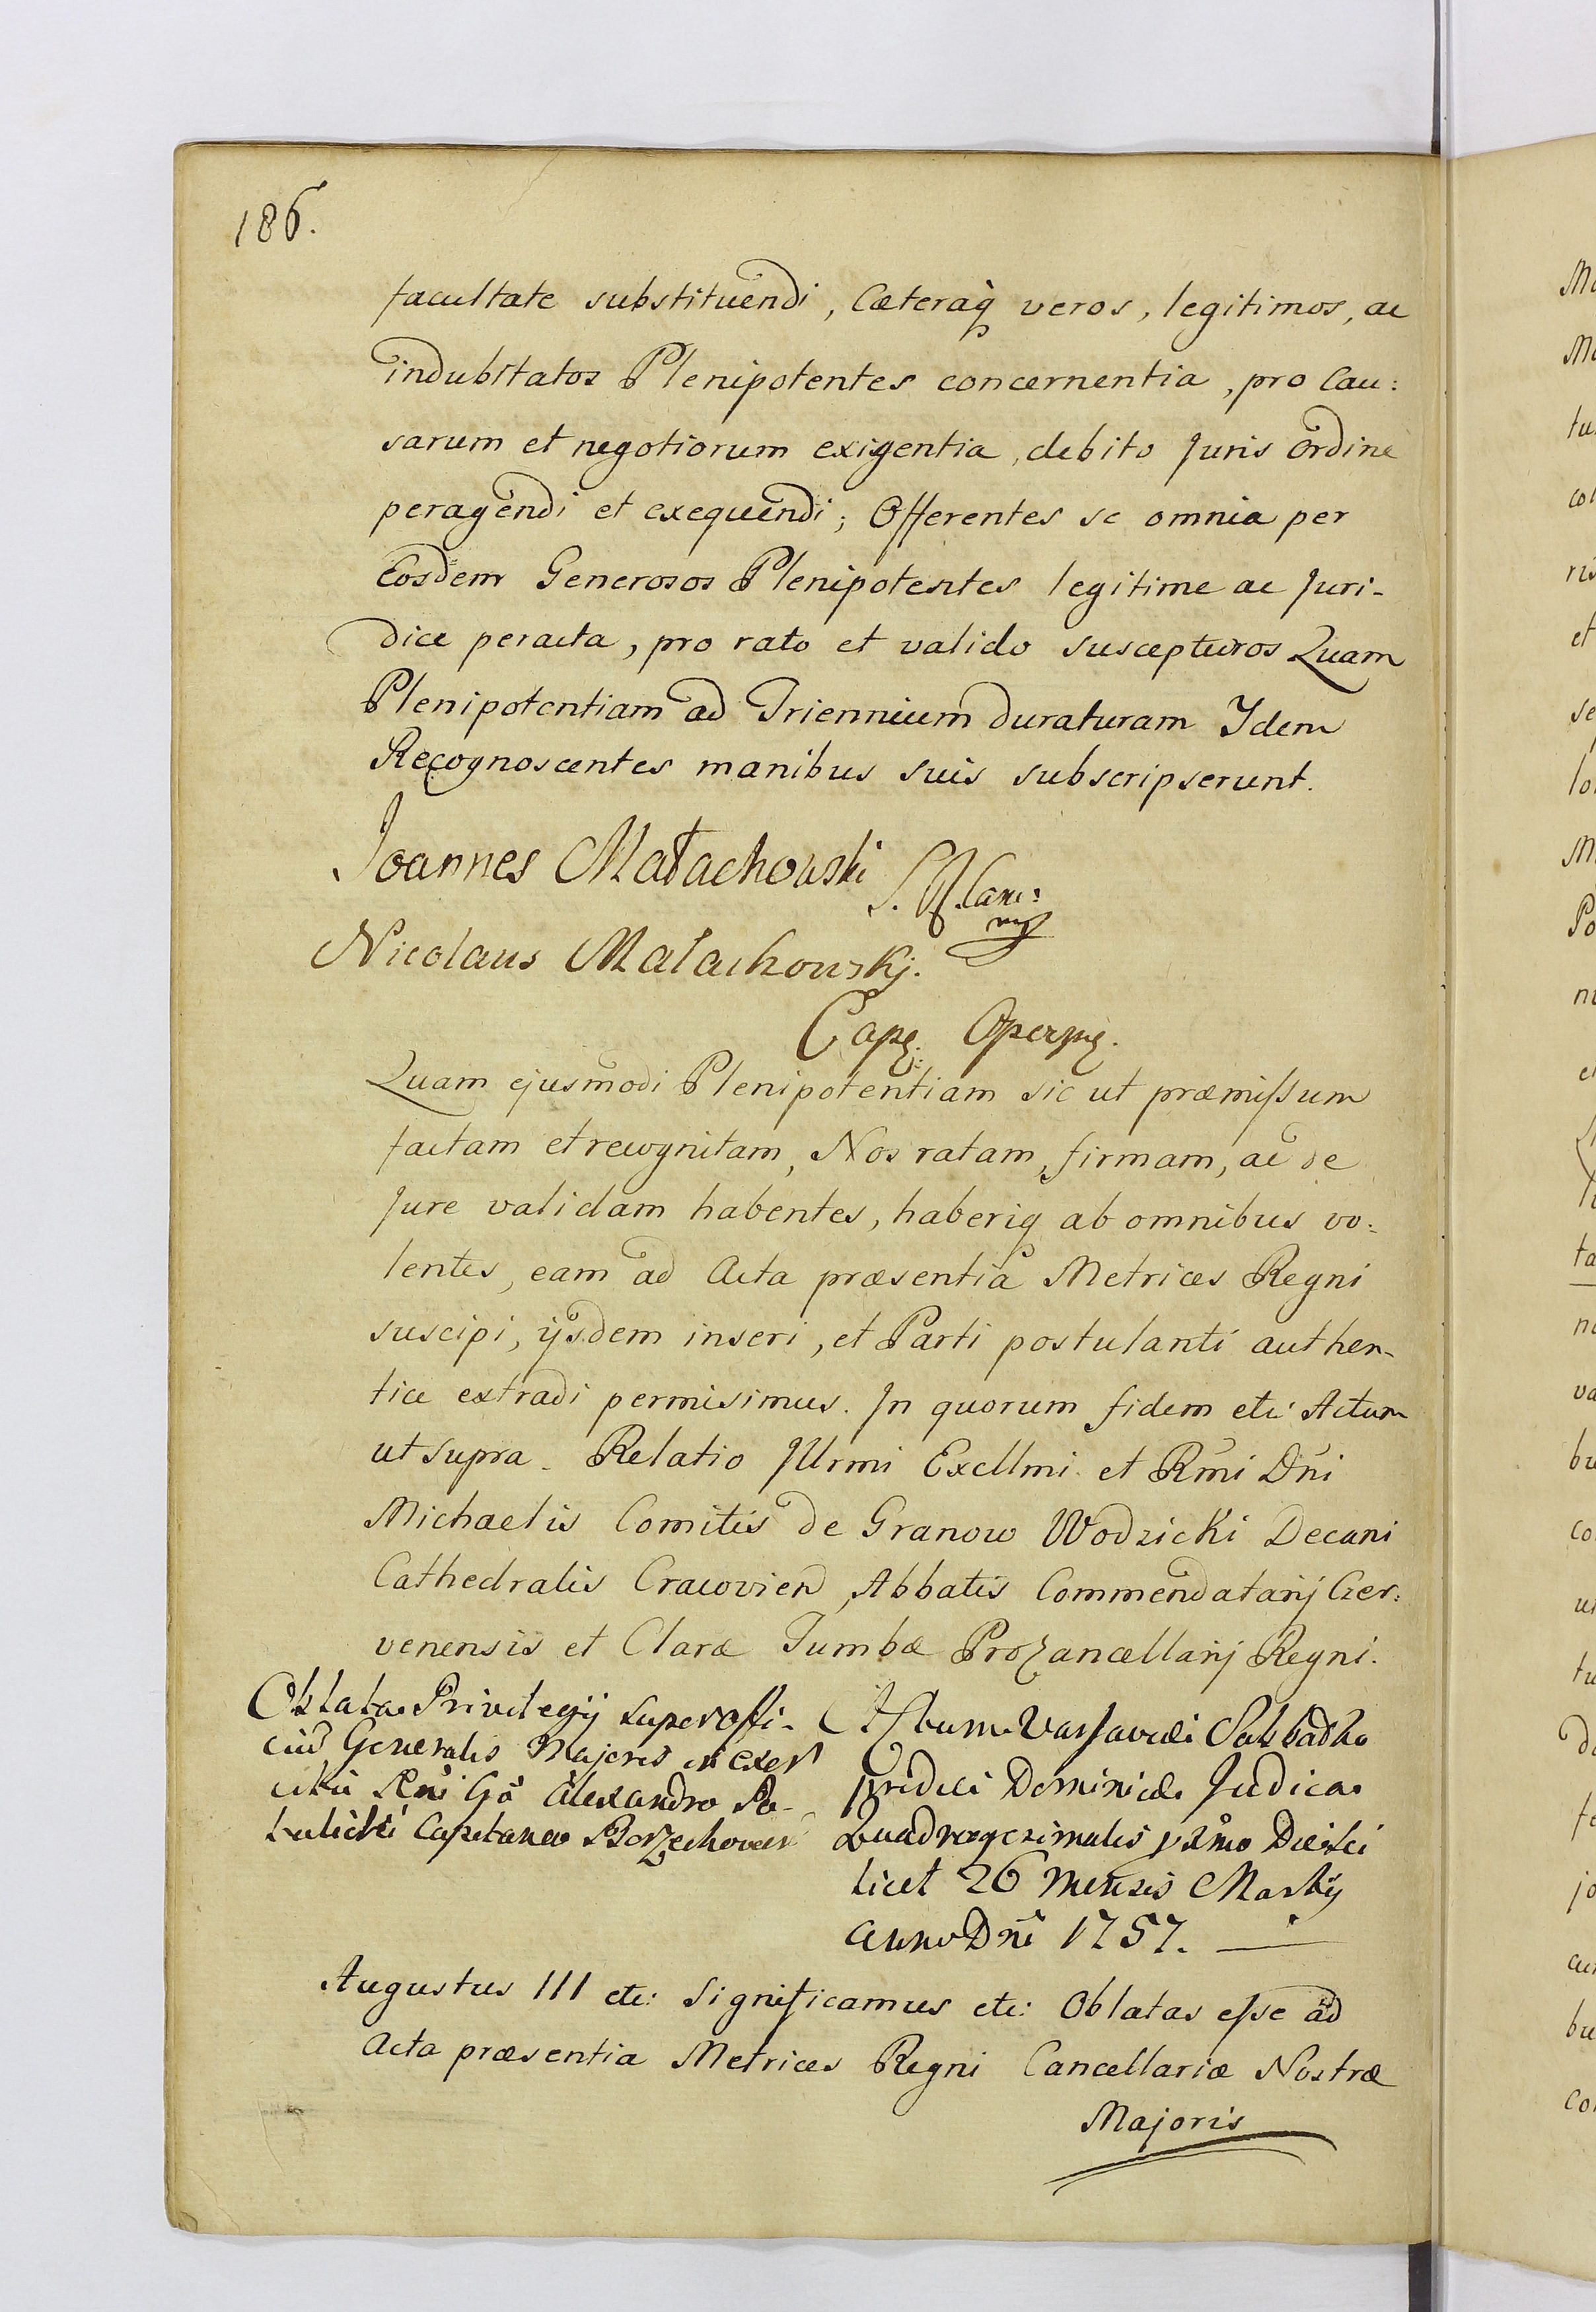 186.
facultate substituendi, Cæteraq̀ veros, legitimos, ac
indubitatos Plenipotentes concernentia, pro Cau:
sarum et negotiorum exigentia, debito Juris Ordine
peragendi et exequendi; Offerentes se omnia per
Eosdem Generosos Plenipotentes legitime ac Juri-
dice peracta, pro rato et valido suscepturos Quam
Plenipotentiam ad Triennium duraturam Idem
Recognoscentes manibus suis subscripserunt.
Joannes Małachowski S. R. Canc:
mp
Nicolaus Małachowskj.
Cap:
Quam ejusmodi Plenipotentiam sic ut præmissum
factam et recognitam, Nos ratam, firmam, ac de
Jure validam habentes, haberiq ab omnibus vo:
lentes, eam ad Acta præsentia Metrices Regni
suscipi, ijsdem inseri, et Parti postulanti authen-
tice extradi permisimus. In quorum fidem etc: Actum
ut supra. Relatio Illrmi Excllmi et Rmi Dni
Michaelis Comitis de Granow Wodzicki Decani
Cathedralis Cracovien, Abbatis Commendatarij Czer:
venensis et Claræ Tumbæ Procancellarij Regni.
Oblata Privilegij super offi-
ciu Generalis Majoris in exer
citu Rni Gō Alexandro Po-
tulicki Capitaneo Borzechovien
Actum Varsaviæ Sabbatho
pridie Dominicæ Judica
Quadragesimalis pximo Die sci
licet 26 Mensis Martij
Anno Dni 1757.
Augustus III etc: Significamus etc: Oblatas esse ad
Acta præsentia Metrices Regni Cancellariæ Nostræ
Majoris